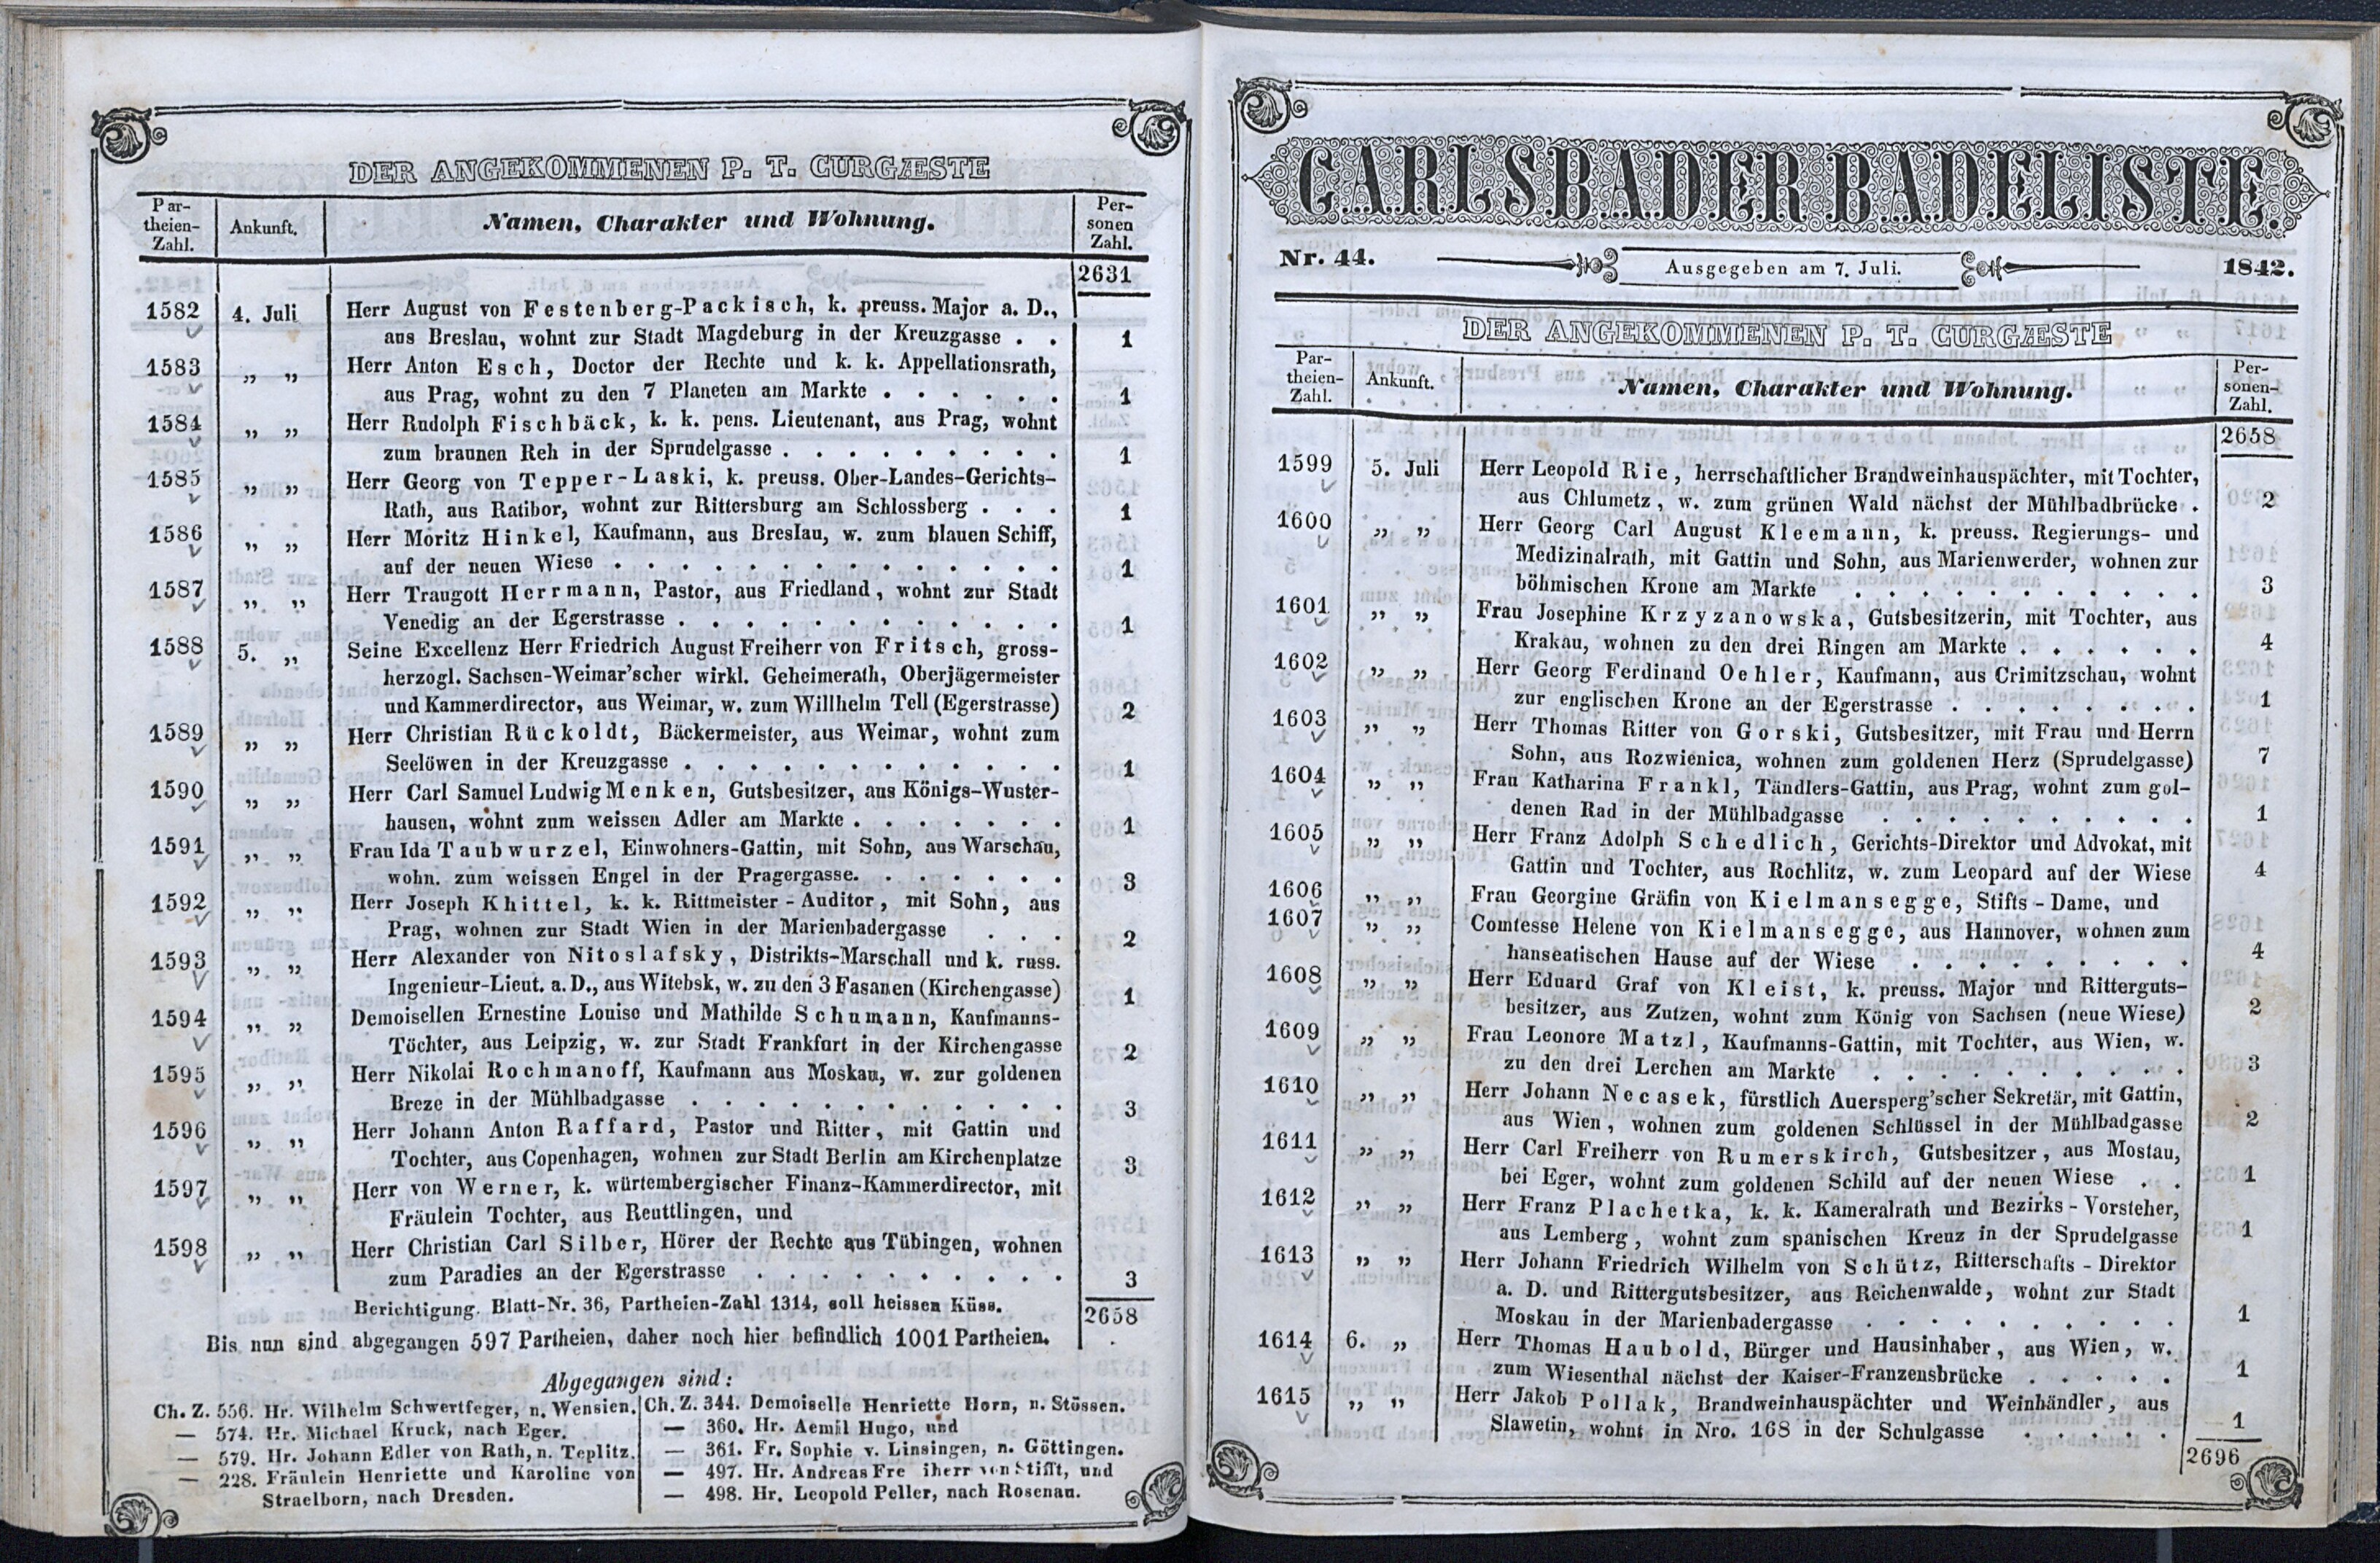 DER ANGEKOMMENEN P. T. CURGÆSTE
Par-
theien-
Zahl.
Ankunft.
Namen, Charakter und Wohnung.
Per-
sonen
Zahl.
2631
1582 4. Juli Herr August von Festenberg-Packisch, k. preuss. Major a. D.,
aus Breslau, wohnt zur Stadt Magdeburg in der Kreuzgasse . . 1
1583 „ „ Herr Anton Esch, Doctor der Rechte und k. k. Appellationsrath,
aus Prag, wohnt zu den 7 Planeten am Markte . . . . . . 1
1584 „ „ Herr Rudolph Fischbäck, k. k. pens. Lieutenant, aus Prag, wohnt
zum braunen Reh in der Sprudelgasse . . . . . . . . . 1
1585 „ „ Herr Georg von Tepper-Laski, k. preuss. Ober-Landes-Gerichts-
Rath, aus Ratibor, wohnt zur Rittersburg am Schlossberg . . . 1
1586 „ „ Herr Moritz Hinkel, Kaufmann, aus Breslau, w. zum blauen Schiff,
auf der neuen Wiese . . . . . . . . . . . . . . 1
1587 „ „ Herr Traugott Herrmann, Pastor, aus Friedland, wohnt zur Stadt
Venedig an der Egerstrasse . . . . . . . . . . . . 1
1588 5. „ Seine Excellenz Herr Friedrich August Freiherr von Fritsch, gross-
herzogl. Sachsen-Weimar'scher wirkl. Geheimerath, Oberjägermeister
und Kammerdirector, aus Weimar, w. zum Willhelm Tell (Egerstrasse) 2
1589 „ „ Herr Christian Rückoldt, Bäckermeister, aus Weimar, wohnt zum
Seelöwen in der Kreuzgasse . . . . . . . . . . . . 1
1590 „ „ Herr Carl Samuel Ludwig Menken, Gutsbesitzer, aus Königs-Wuster-
hausen, wohnt zum weissen Adler am Markte . . . . . . . 1
1591 „ „ Frau Ida Taubwurzel, Einwohners-Gattin, mit Sohn, aus Warschau,
wohn. zum weissen Engel in der Pragergasse. . . . . . . 3
1592 „ „ Herr Joseph Khittel, k. k. Rittmeister-Auditor, mit Sohn, aus
Prag, wohnen zur Stadt Wien in der Marienbadergasse . . . 2
1593 „ „ Herr Alexander von Nitoslafsky, Distrikts-Marschall und k. russ.
Ingenieur-Lieut. a. D., aus Witebsk, w. zu den 3 Fasanen (Kirchengasse) 1
1594 „ „ Demoisellen Ernestine Louise und Mathilde Schumann, Kaufmanns-
Töchter, aus Leipzig, w. zur Stadt Frankfurt in der Kirchengasse 2
1595 „ „ Herr Nikolai Rochmanoff, Kaufmann aus Moskau, w. zur goldenen
Breze in der Mühlbadgasse . . . . . . . . . . . . 3
1596 „ „ Herr Johann Anton Raffard, Pastor und Ritter, mit Gattin und
Tochter, aus Copenhagen, wohnen zur Stadt Berlin am Kirchenplatze 3
1597 „ „ Herr von Werner, k. würtembergischer Finanz-Kammerdirector, mit
Fräulein Tochter, aus Reuttlingen, und
1598 „ „ Herr Christian Carl Silber, Hörer der Rechte aus Tübingen, wohnen
zum Paradies an der Egerstrasse . . . . . . . . . . 3
Berichtigung. Blatt-Nr. 36, Partheien-Zahl 1314, soll heissen Küss.
2658
Bis nun sind abgegangen 597 Partheien, daher noch hier befindlich 1001 Partheien.
Abgegangen sind:
Ch. Z. 556. Hr. Wilhelm Schwertfeger, n. Wensien.
— 574. Hr. Michael Kruck, nach Eger.
— 579. Hr. Johann Edler von Rath, n. Teplitz.
— 228. Fräulein Henriette und Karoline von
Straelborn, nach Dresden.
Ch. Z. 344. Demoiselle Henriette Horn, n. Stössen.
— 360. Hr. Aemil Hugo, und
— 361. Fr. Sophie v. Linsingen, n. Göttingen.
— 497. Hr. Andreas Fre iherr von Stifft, und
— 498. Hr. Leopold Peller, nach Rosenau.
CARLSBADER BADELISTE.
Nr. 44.
Ausgegeben am 7. Juli.
1842.
DER ANGEKOMMENEN P. T. CURGÆSTE
Par-
theien-
Zahl.
Ankunft.
Namen, Charakter und Wohnung.
Per-
sonen-
Zahl.
2658
1599 5. Juli Herr Leopold Rie, herrschaftlicher Brandweinhauspächter, mit Tochter,
aus Chlumetz, w. zum grünen Wald nächst der Mühlbadbrücke . 2
1600 „ „ Herr Georg Carl August Kleemann, k. preuss. Regierungs- und
Medizinalrath, mit Gattin und Sohn, aus Marienwerder, wohnen zur
böhmischen Krone am Markte . . . . . . . . . . . 3
1601 „ „ Frau Josephine Krzyzanowska, Gutsbesitzerin, mit Tochter, aus
Krakau, wohnen zu den drei Ringen am Markte . . . . . . 4
1602 „ „ Herr Georg Ferdinand Oehler, Kaufmann, aus Crimitzschau, wohnt
zur englischen Krone an der Egerstrasse . . . . . . . . 1
1603 „ „ Herr Thomas Ritter von Gorski, Gutsbesitzer, mit Frau und Herrn
Sohn, aus Rozwienica, wohnen zum goldenen Herz (Sprudelgasse) 7
1604 „ „ Frau Katharina Frankl, Tändlers-Gattin, aus Prag, wohnt zum gol-
denen Rad in der Mühlbadgasse . . . . . . . . . . 1
1605 „ „ Herr Franz Adolph Schedlich, Gerichts-Direktor und Advokat, mit
Gattin und Tochter, aus Rochlitz, w. zum Leopard auf der Wiese 4
1606 „ „ Frau Georgine Gräfin von Kielmansegge, Stifts-Dame, und
1607 „ „ Comtesse Helene von Kielmansegge, aus Hannover, wohnen zum
hanseatischen Hause auf der Wiese . . . . . . . . . 4
1608 „ „ Herr Eduard Graf von Kleist, k. preuss. Major und Ritterguts-
besitzer, aus Zutzen, wohnt zum König von Sachsen (neue Wiese) 2
1609 „ „ Frau Leonore Matzl, Kaufmanns-Gattin, mit Tochter, aus Wien, w.
zu den drei Lerchen am Markte . . . . . . . . . . 3
1610 „ „ Herr Johann Necasek, fürstlich Auersperg'scher Sekretär, mit Gattin,
aus Wien, wohnen zum goldenen Schlüssel in der Mühlbadgasse 2
1611 „ „ Herr Carl Freiherr von Rumerskirch, Gutsbesitzer, aus Mostau,
bei Eger, wohnt zum goldenen Schild auf der neuen Wiese . . 1
1612 „ „ Herr Franz Plachetka, k. k. Kameralrath und Bezirks-Vorsteher,
aus Lemberg, wohnt zum spanischen Kreuz in der Sprudelgasse 1
1613 „ „ Herr Johann Friedrich Wilhelm von Schütz, Ritterschafts-Direktor
a. D. und Rittergutsbesitzer, aus Reichenwalde, wohnt zur Stadt
Moskau in der Marienbadergasse . . . . . . . . . . 1
1614 6. „ Herr Thomas Haubold, Bürger und Hausinhaber, aus Wien, w.
zum Wiesenthal nächst der Kaiser-Franzensbrücke . . . . . 1
1615 „ „ Herr Jakob Pollak, Brandweinhauspächter und Weinhändler, aus
Slawetin, wohnt in Nro. 168 in der Schulgasse . . . . . 1
2696